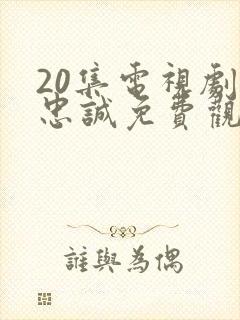 20集電視劇
忠誠免費觀
誰與為偶